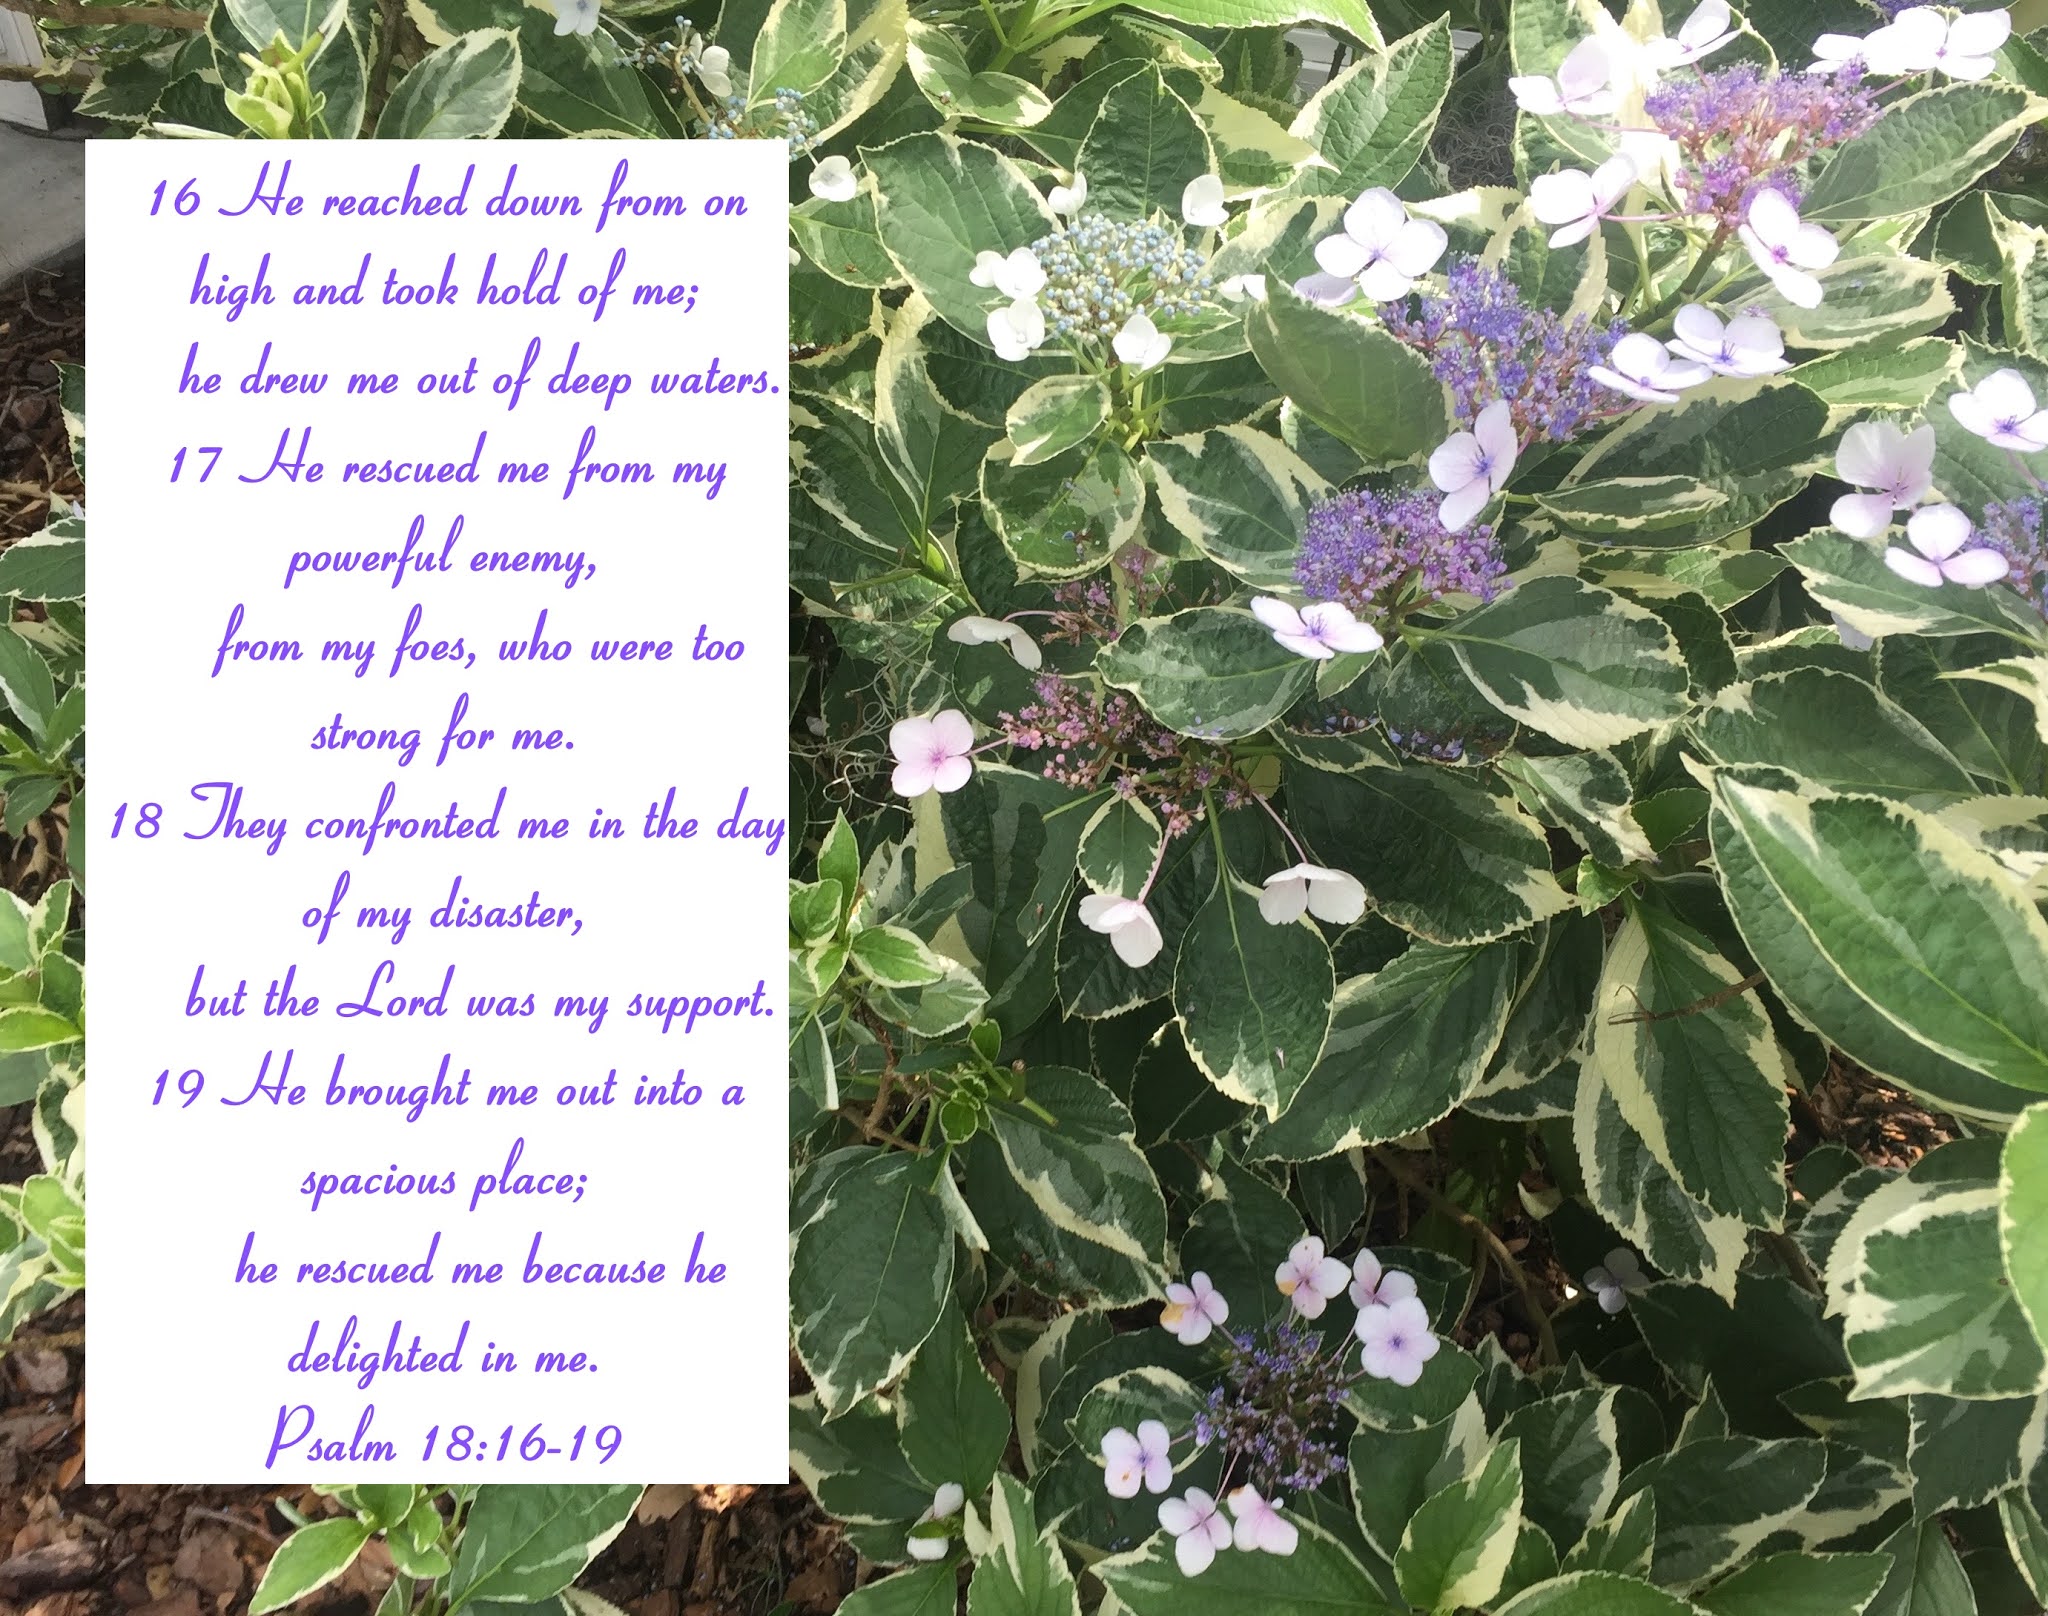 16 He reached down from on
high and took hold of me;
he drew me out of deep waters.
17 He rescued me from my
powerful enemy,
from my foes, who were too
strong for me.
18 They confronted me in the day
of my disaster,
but the Lord was my support.
19 He brought me out into a
spacious place;
he rescued me because he
delighted in me.
Psalm 18:16-19